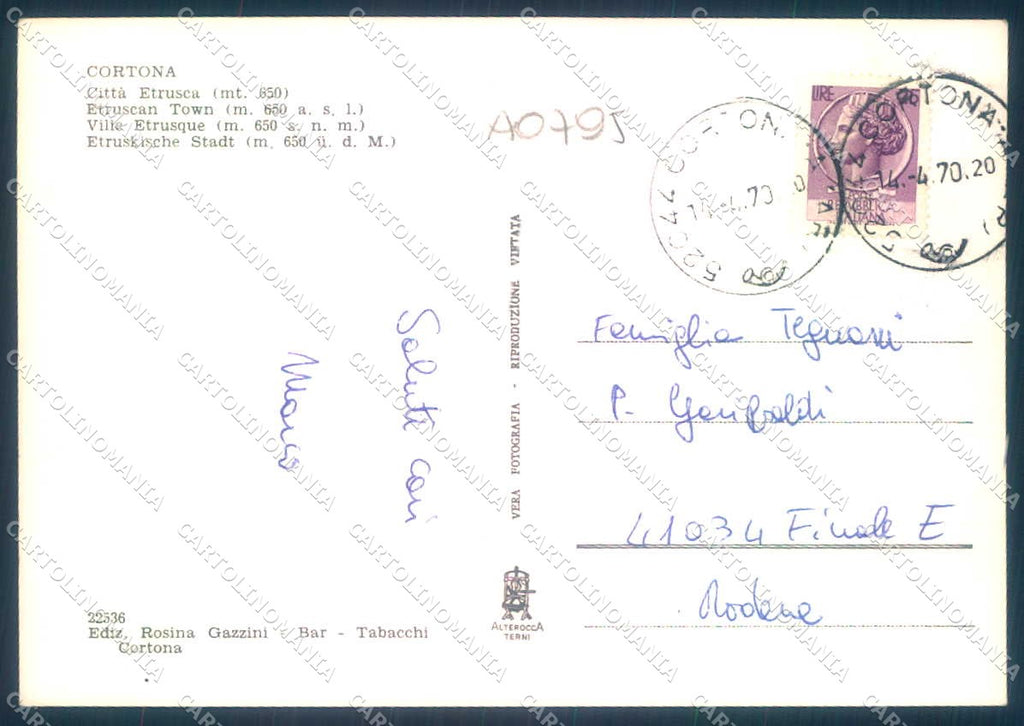 CORTONA
Città Etrusca (mt. 650)
Etruscan Town (m. 650 a. s. l.)
Ville Etrusque (m. 650 s. n. m.)
Etruskische Stadt (m. 650 ü. d. M.)
A0795
LIRE
52044 CORTONA
14.-4.70.20
Saluti cari
Marco
VERA FOTOGRAFIA - RIPRODUZIONE VIETATA
Famiglia
P. Garibaldi
41034 Finale E
Modena
22536
Ediz. Rosina Gazzini - Bar - Tabacchi
Cortona
ALTEROCCA
TERNI
CARTOLINOMANIA